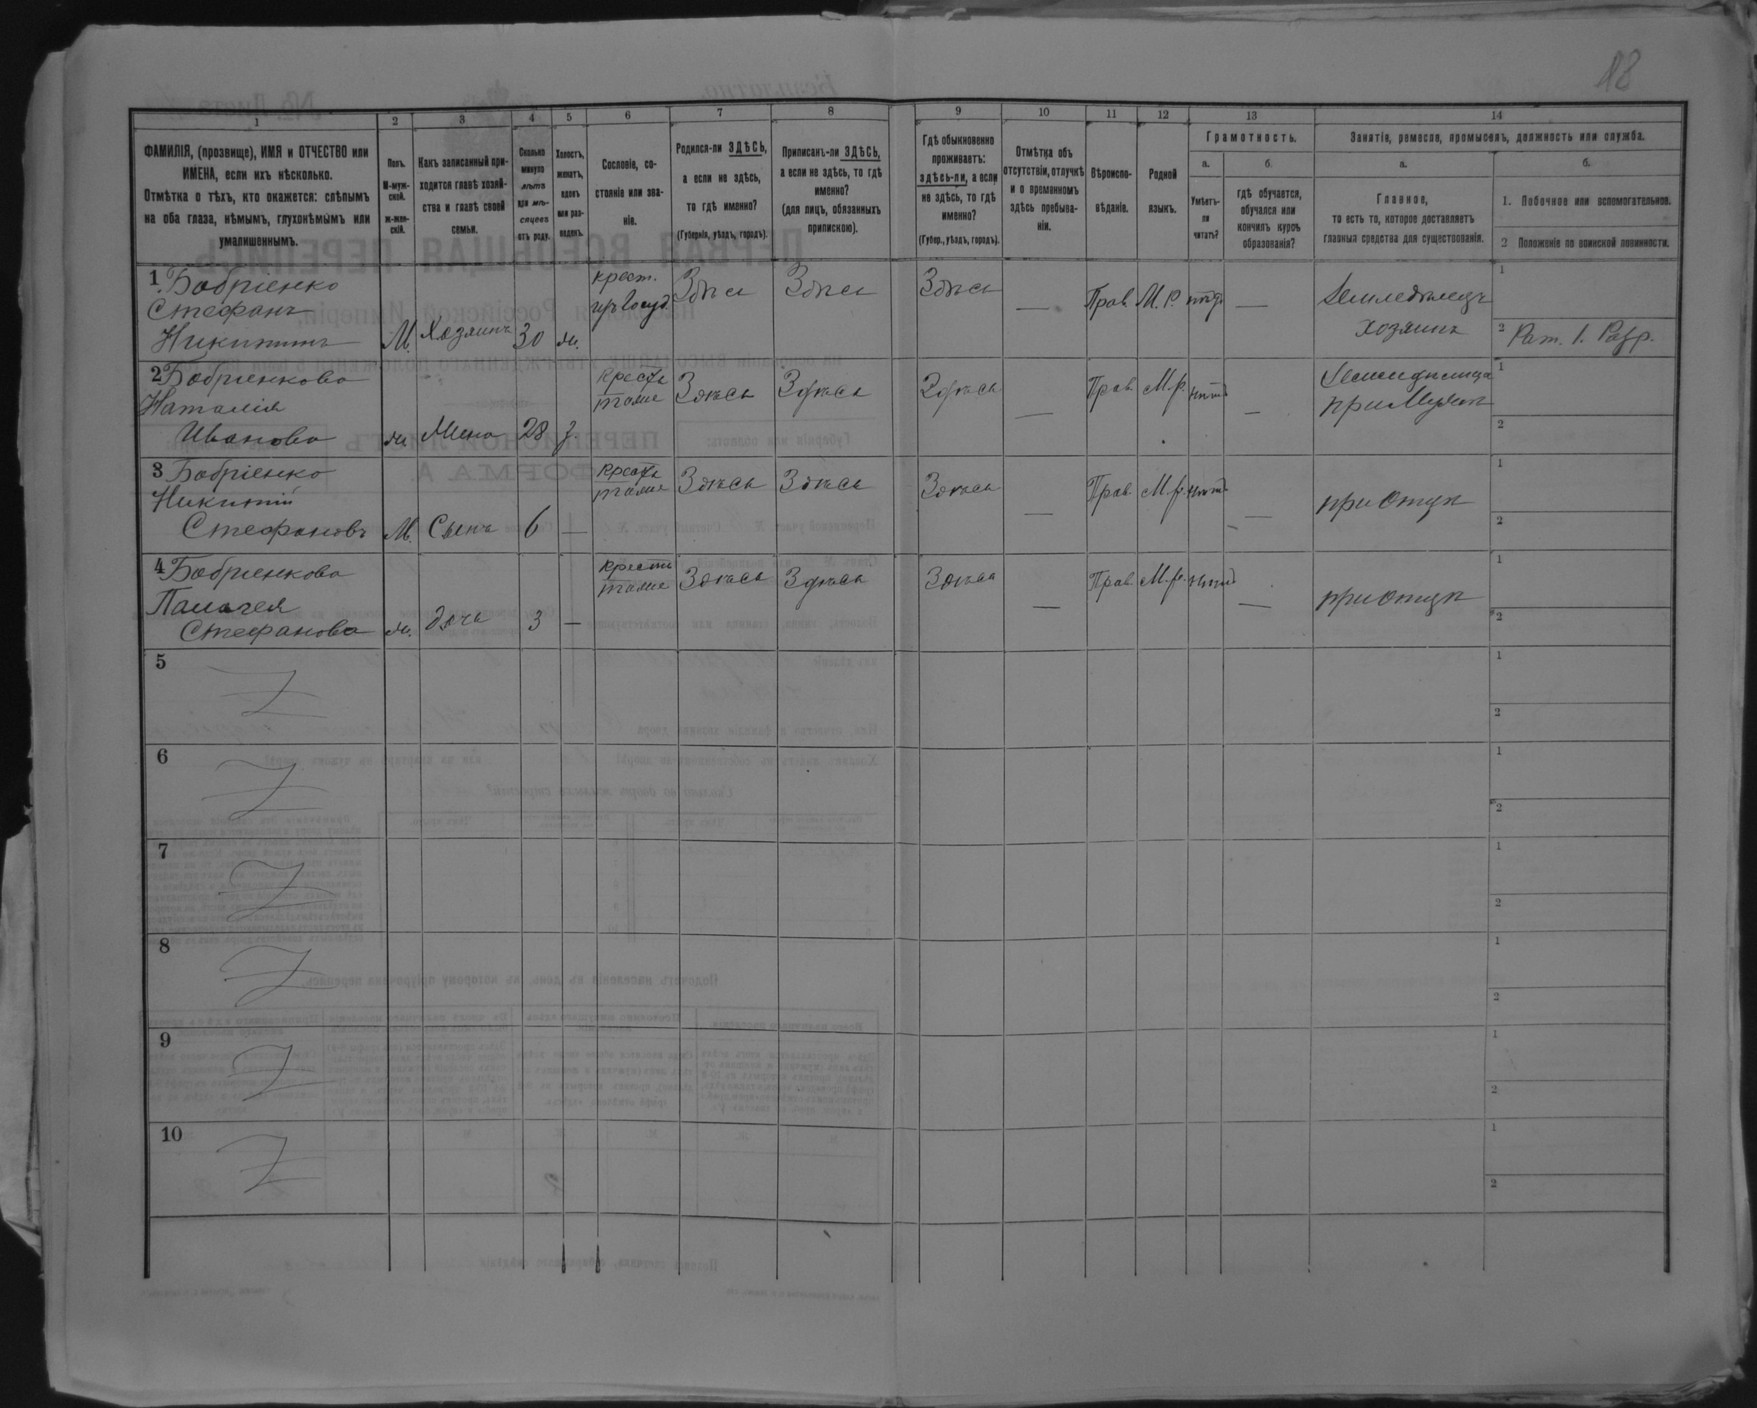 18
1 2 3 4 5 6 7 8 9 10 11 12 13 14
ФАМИЛІЯ, (прозвище), ИМЯ и ОТЧЕСТВО или
ИМЕНА, если ихъ нѣсколько.
Отмѣтка о тѣхъ, кто окажется: слѣпымъ
на оба глаза, нѣмымъ, глухонѣмымъ или
умалишеннымъ.
Полъ.
М-муж-
ской.
ж-жен-
скій.
Какъ записанный при-
ходится главѣ хозяй-
ства и главѣ своей
семьи.
Сколько
минуло
лѣтъ
или мѣ-
сяцевъ
отъ роду.
Холостъ,
женатъ,
вдовъ
или раз-
веденъ.
Сословіе, со-
стояніе или зва-
ніе.
Родился-ли ЗДѢСЬ,
а если не здѣсь,
то гдѣ именно?
(Губернія, уѣздъ, городъ).
Приписанъ-ли ЗДѢСЬ,
а если не здѣсь, то гдѣ
именно?
(для лицъ, обязанныхъ
припискою).
Гдѣ обыкновенно
проживаетъ:
здѣсь-ли, а если
не здѣсь, то гдѣ
именно?
(Губер., уѣздъ, городъ).
Отмѣтка объ
отсутствіи, отлучкѣ
и о временномъ
здѣсь пребыва-
ніи.
Вѣроиспо-
вѣданіе.
Родной
языкъ.
Грамотность.
а.
Умѣетъ-
ли
читать?
б.
гдѣ обучается,
обучался или
кончилъ курсъ
образованія?
Занятіе, ремесло, промыселъ, должность или служба.
а.
Главное,
то есть то, которое доставляетъ
главныя средства для существованія.
б.
1. Побочное или вспомогательное.
2 Положеніе по воинской повинности.
1. Бобріенко
Стефанъ
Никитинъ
М. Хозяинъ 30 ж.
крест.
Здѣсь Здѣсь Здѣсь — Прав. М. Р. нѣтъ —
Земледѣлецъ
хозяинъ
1
2 Рат. 1. Разр.
2 Бобріенкова
Наталія
Иванова
ж. Жена 28 з.
Крест
тоже
Здѣсь Здѣсь Здѣсь — Прав М. р. нѣтъ —
при Мужѣ
1
2
3 Бобріенко
Никитій
Стефановъ
М. Сынъ 6 —
Крест
тоже
Здѣсь Здѣсь Здѣсь — Прав. М. р. нѣтъ —
при Отцѣ
1
2
4 Бобріенкова
Палагея
Стефанова
ж. дочь 3 —
Крест
тоже
Здѣсь Здѣсь Здѣсь — Прав М. р. нѣтъ —
при Отцѣ
1
2
5
1
2
6
1
2
7
1
2
8
1
2
9
1
2
10
1
2